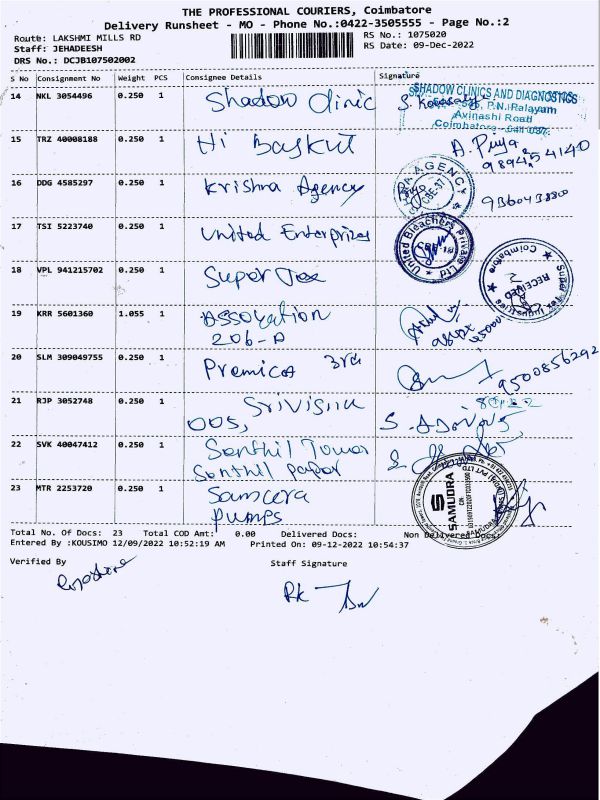 THE PROFESSIONAL COURIERS, Coimbatore
Delivery Runsheet - MO - Phone No.:0422-3505555 - Page No.:2
Route: LAKSHMI MILLS RD
RS No.: 1075020
Staff: JEHADEESH
RS Date: 09-Dec-2022
DRS No.: DCJB107502002
S No Consignment No Weight PCS Consignee Details Signature
14 NKL 3054496 0.250 1 Shadow Clinic
SHADOW CLINICS AND DIAGNOSTICS
Avinashi Road
15 TRZ 40008188 0.250 1 Hi Baskut A. Priya
989454140
16 DDG 4585297 0.250 1 Krishna Agency
AGENCY
17 TSI 5223740 0.250 1 United Enterprizes
United Bleachers Private Ltd
18 VPL 941215702 0.250 1 Super Tex
Super Tex Industries
Coimbatore
RECEIVED
19 KRR 5601360 1.055 1 Assoyation
206-A
20 SLM 309049755 0.250 1 Premicas 3rd
9500856292
21 RJP 3052748 0.250 1 Srivisna
005,
22 SVK 40047412 0.250 1 Senthil Tower
Senthil papar
23 MTR 2253720 0.250 1 Samcera
Pumps
SAMUDRA
Total No. Of Docs: 23 Total COD Amt: 0.00 Delivered Docs: Non Delivered Docs:
Entered By :KOUSIMO 12/09/2022 10:52:19 AM Printed On: 09-12-2022 10:54:37
Verified By Staff Signature
RK